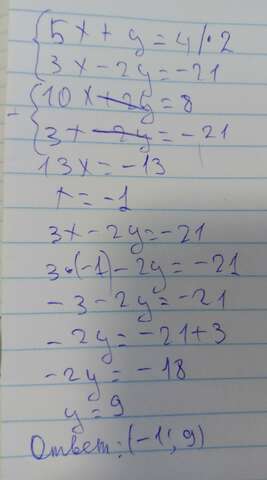 5x + y = 4 | · 2
3x - 2y = -21
10x + 2y = 8
- 3x - 2y = -21
13x = -13
x = -1
3x - 2y = -21
3·(-1) - 2y = -21
-3 - 2y = -21
-2y = -21+3
-2y = -18
y = 9
Ответ: (-1; 9)